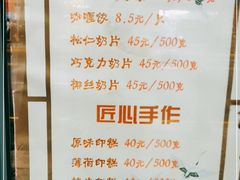 咖喱饺 8.5元/只
松仁奶片 45元/500克
巧克力奶片 45元/500克
椰丝奶片 45元/500克
匠心手作
原味印糕 40元/500克
薄荷印糕 40元/500克